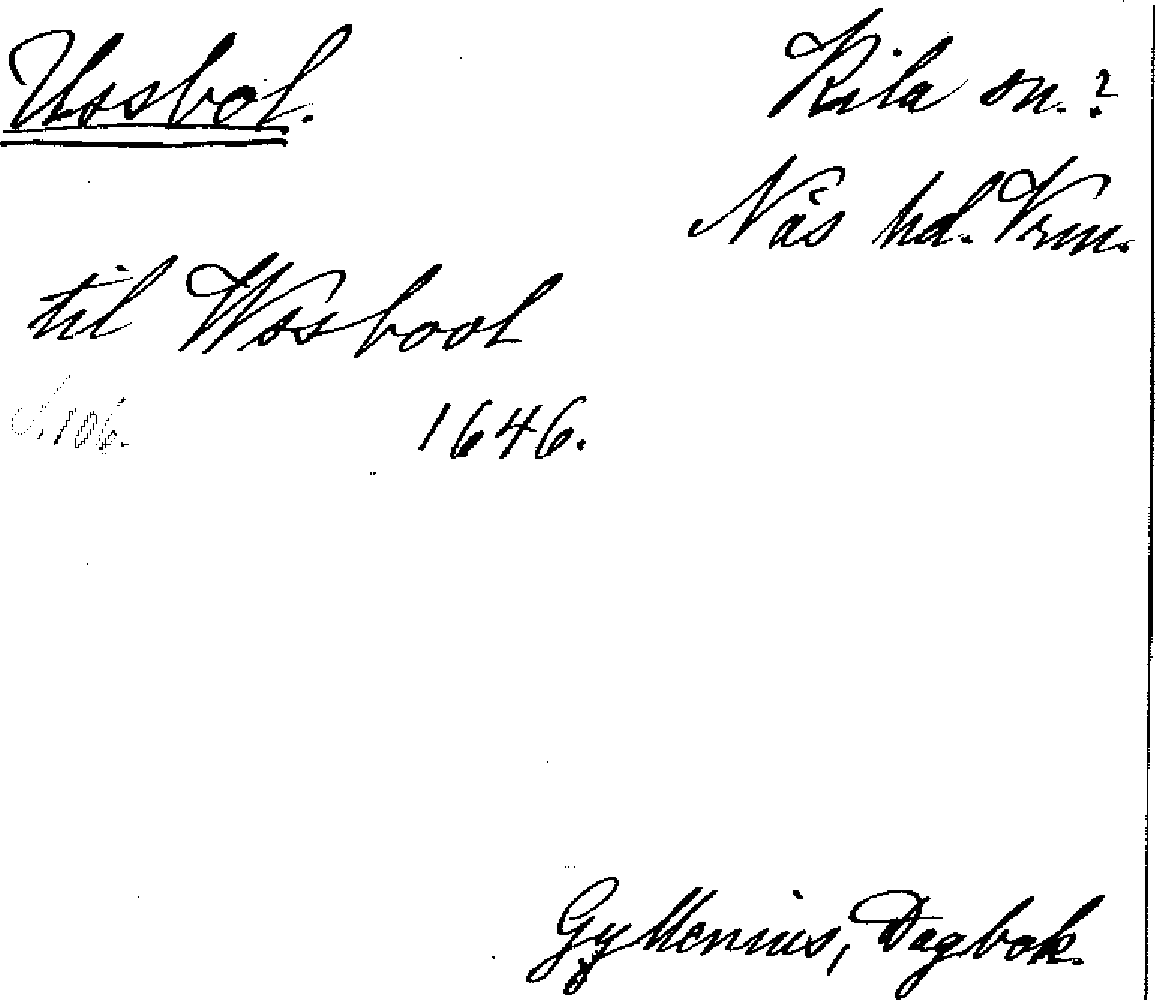 Ussbol.
Kila sn.?
Näs hd. Vrm.
til Wssbool
S. 106.
1646.
Gyllenius, Dagbok.